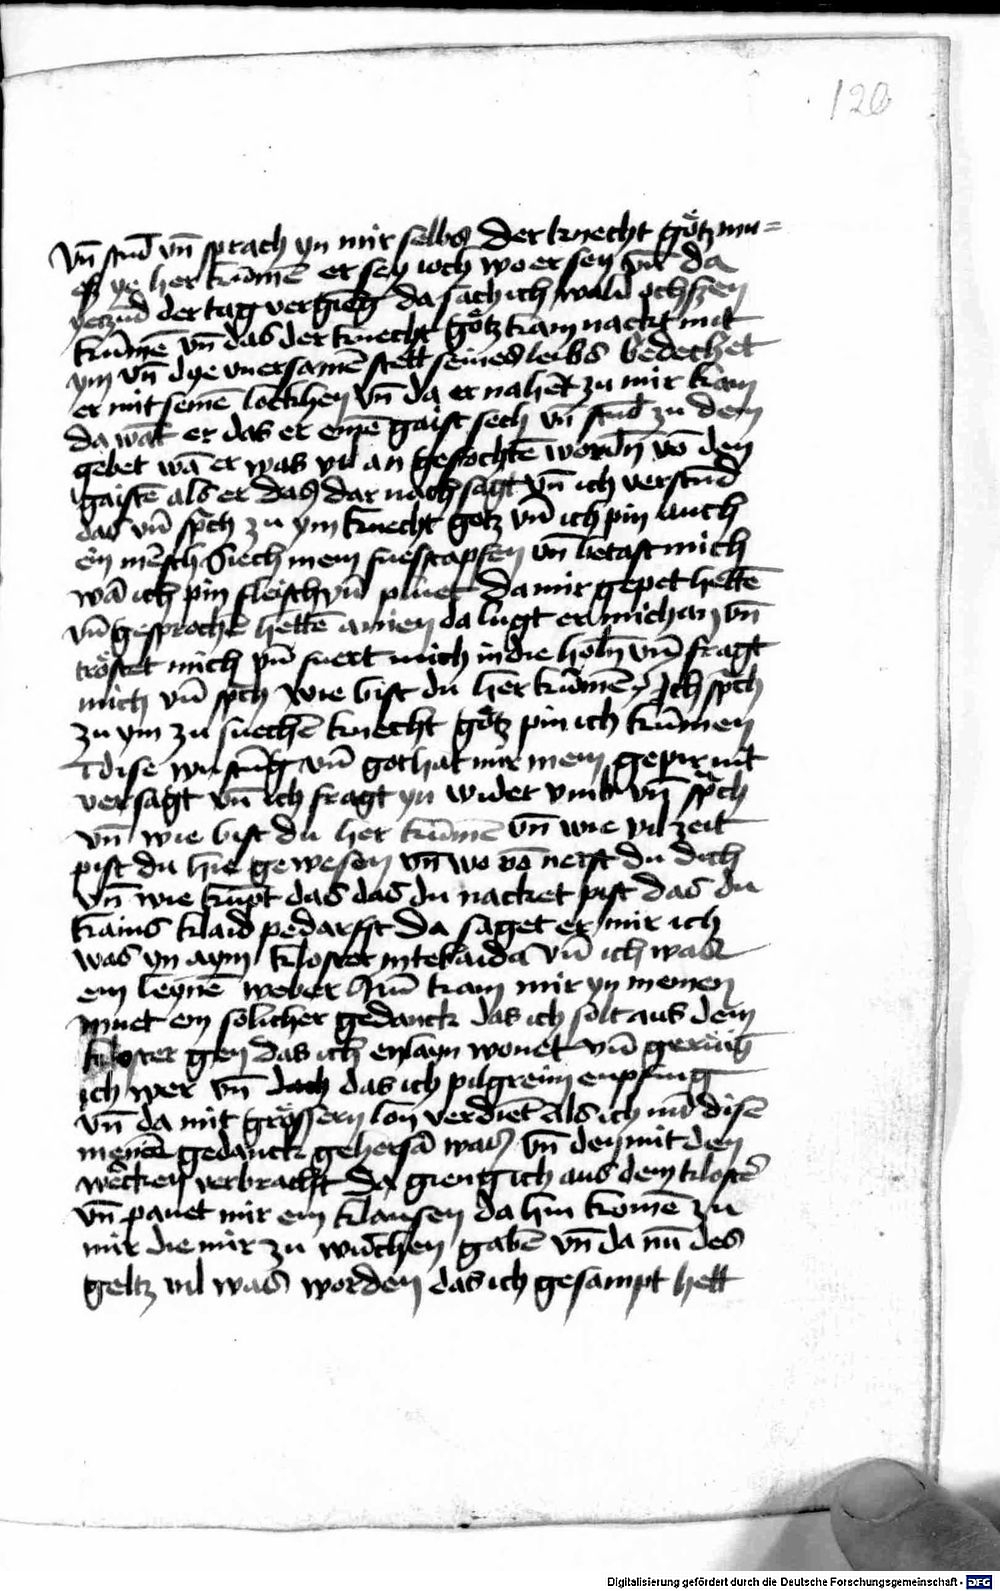 120
vn̄ stūd vn̄ sprach yn mir selbs Der knecht götz mu=
eß ye her kūmē er sey ioch wo er sey vn̄ da
yeczūd der tag vergieng da sach ich wald ochszen
kūmē vn̄ das der knecht götz kam nackt mit
ym vn̄ dye vnersamē stett seines leibs bedecket
er mit seinē lockhen vn̄ da er nahet zu mir kam
da wāt er das er einē gaist sech vn̄ stūd zu dem
gebet wā er was vil an gefochtē wordn̄ vō den
gaistē als er das dar nach sagt vn̄ ich verstūd
das vn̄ sp̄ch zu ym knecht gotz vn̄ ich pin auch
ein mēsch Siech mein fuesstapfen vn̄ betast mich
wā ich pin fleisch vn̄ pluet Da mir gepet hettē
vn̄ gesprochē hettē amen da lugt er mich an vn̄
tröstet mich vn̄ fuert mich in die holn̄ vn̄ fragt
mich vn̄ sp̄ch wie bist du her kūmē Ich sp̄ch
zu ym zu suechē knecht götz pin ich kūmen
ī dise wustūg vn̄ got hat mir mein gepir nit
versagt vn̄ ich fragt yn wider vmb vn̄ sp̄ch
vn̄ wie bist du her kūmē vn̄ wie vil zeit
pist du hie gewesen vn̄ wo vō nerst du dich
vn̄ wie kūpt das das du nacket pist das du
kains klaid pedarfst Da saget er mir ich
was yn aym kloster in tebaida vn̄ ich was
ein leynē weber Nū kam mir yn meinen
muet ein solicher gedanck das ich solt aus dem
kloster gen das ich enlayn wonet vn̄ geruig
ich wer vn̄ das ich pilgreim enpfing
vn̄ da mit grössern lon verdiēt Als ich nu disē
meinē gedanck gehersā was vn̄ den mit den
wercken verbracht Da gieng ich aus dem klostē
vn̄ pauet mir ein klausen da hin komē zu
mir die mir zu wurchen gabē vn̄ da nū des
geltz vil was worden das ich gesampt hett
Digitalisierung gefördert durch die Deutsche Forschungsgemeinschaft - DFG